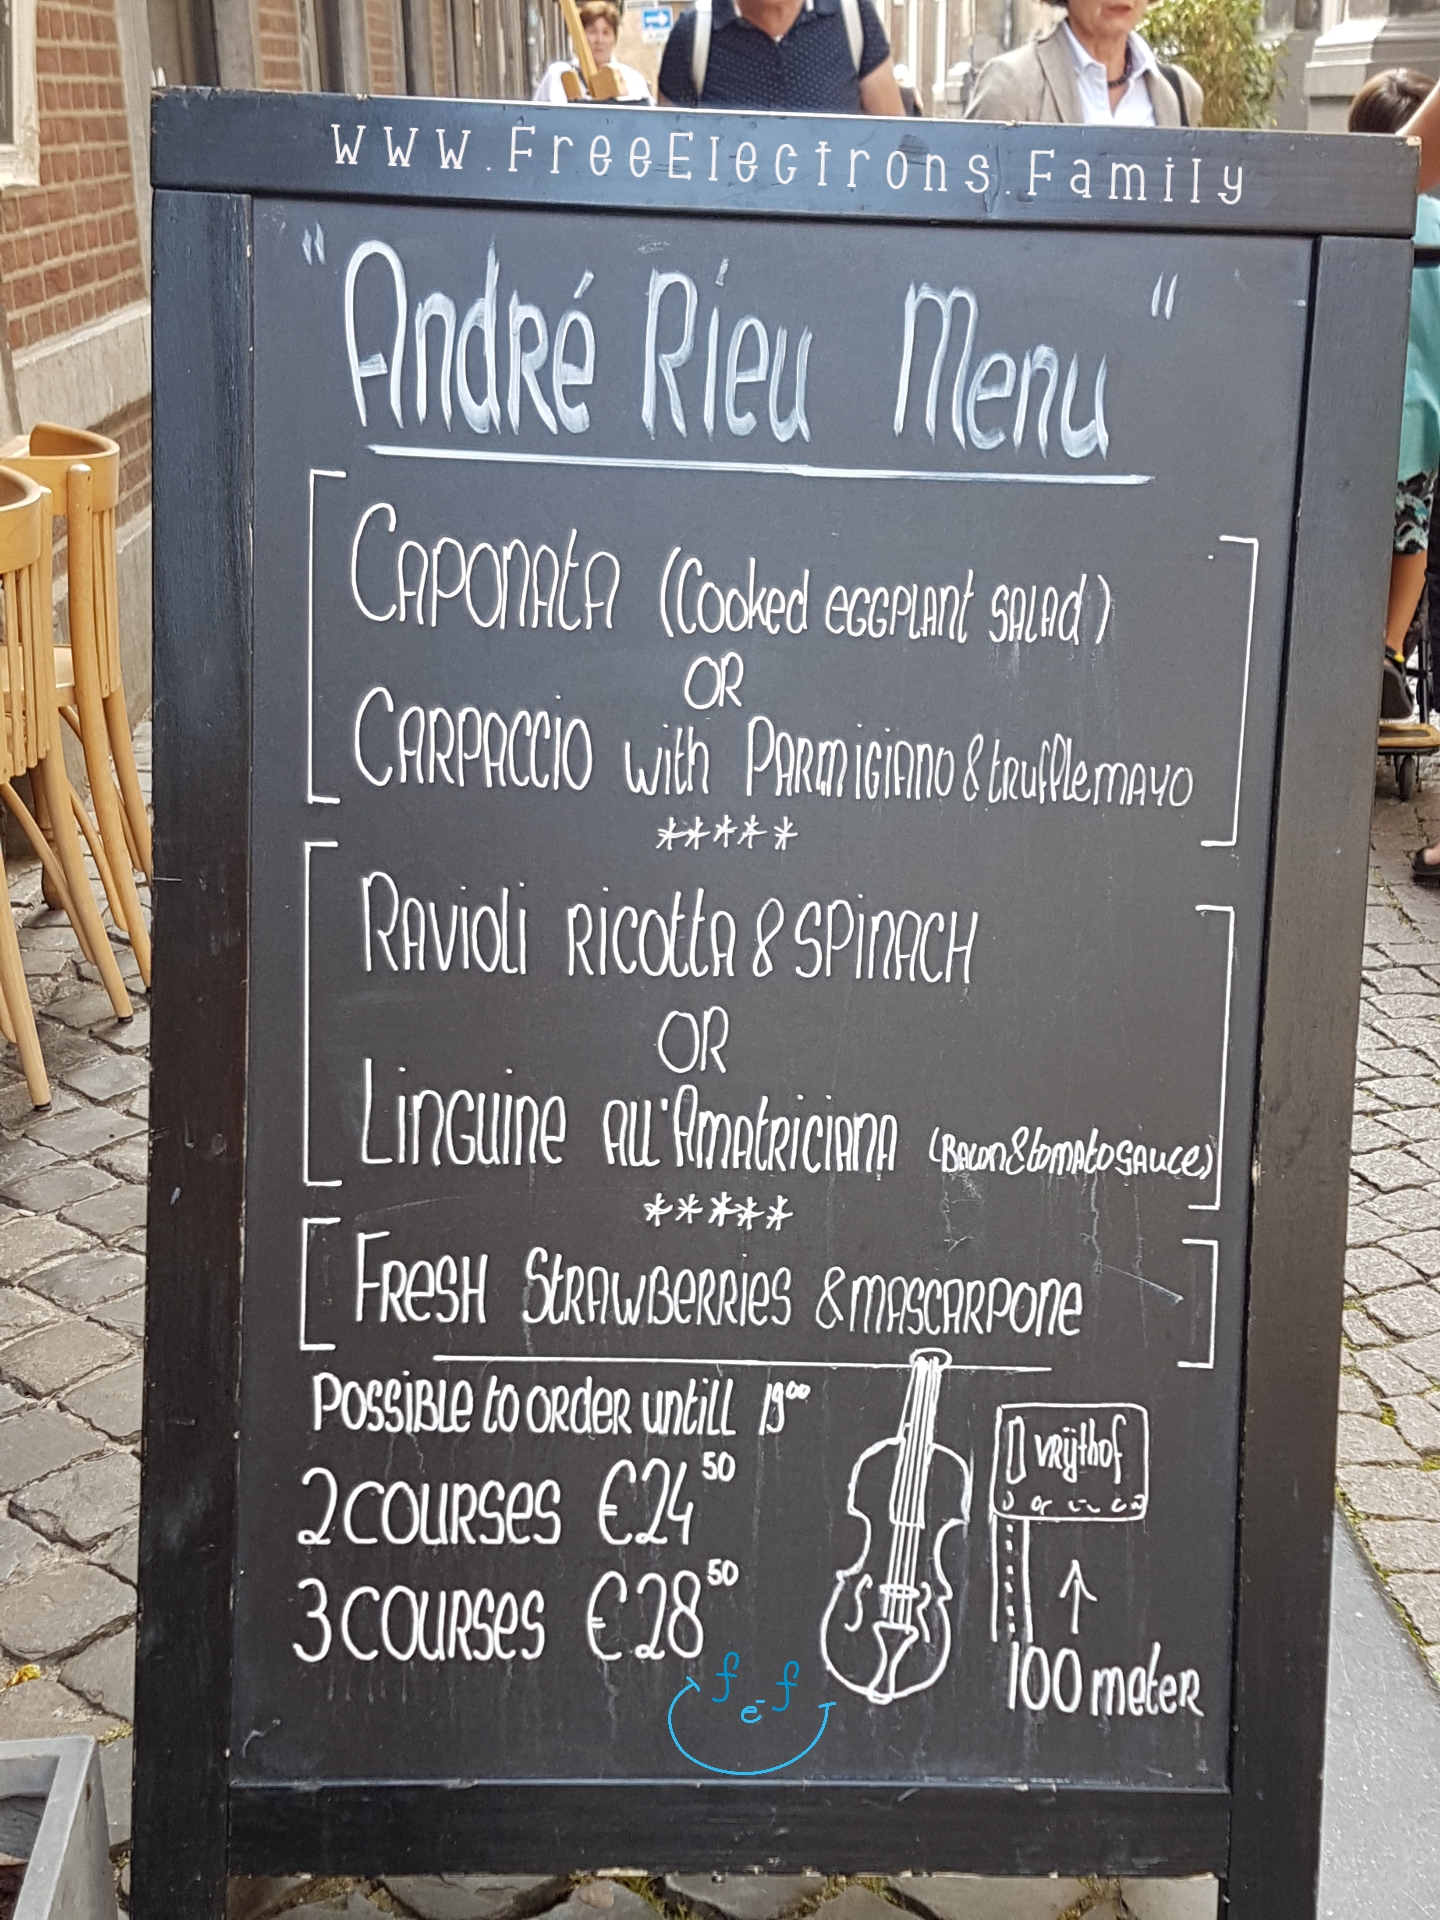 www.FreeElectrons.Family
"André Rieu Menu"
Caponata (Cooked eggplant salad)
OR
Carpaccio with Parmigiano & truffle mayo
*****
Ravioli ricotta & spinach
OR
Linguine all'Amatriciana (Bacon & tomato sauce)
*****
Fresh Strawberries & mascarpone
Possible to order untill 19⁰⁰
2 courses €24⁵⁰
3 courses €28⁵⁰
vrijthof
↑
100 meter
f e⁻ f